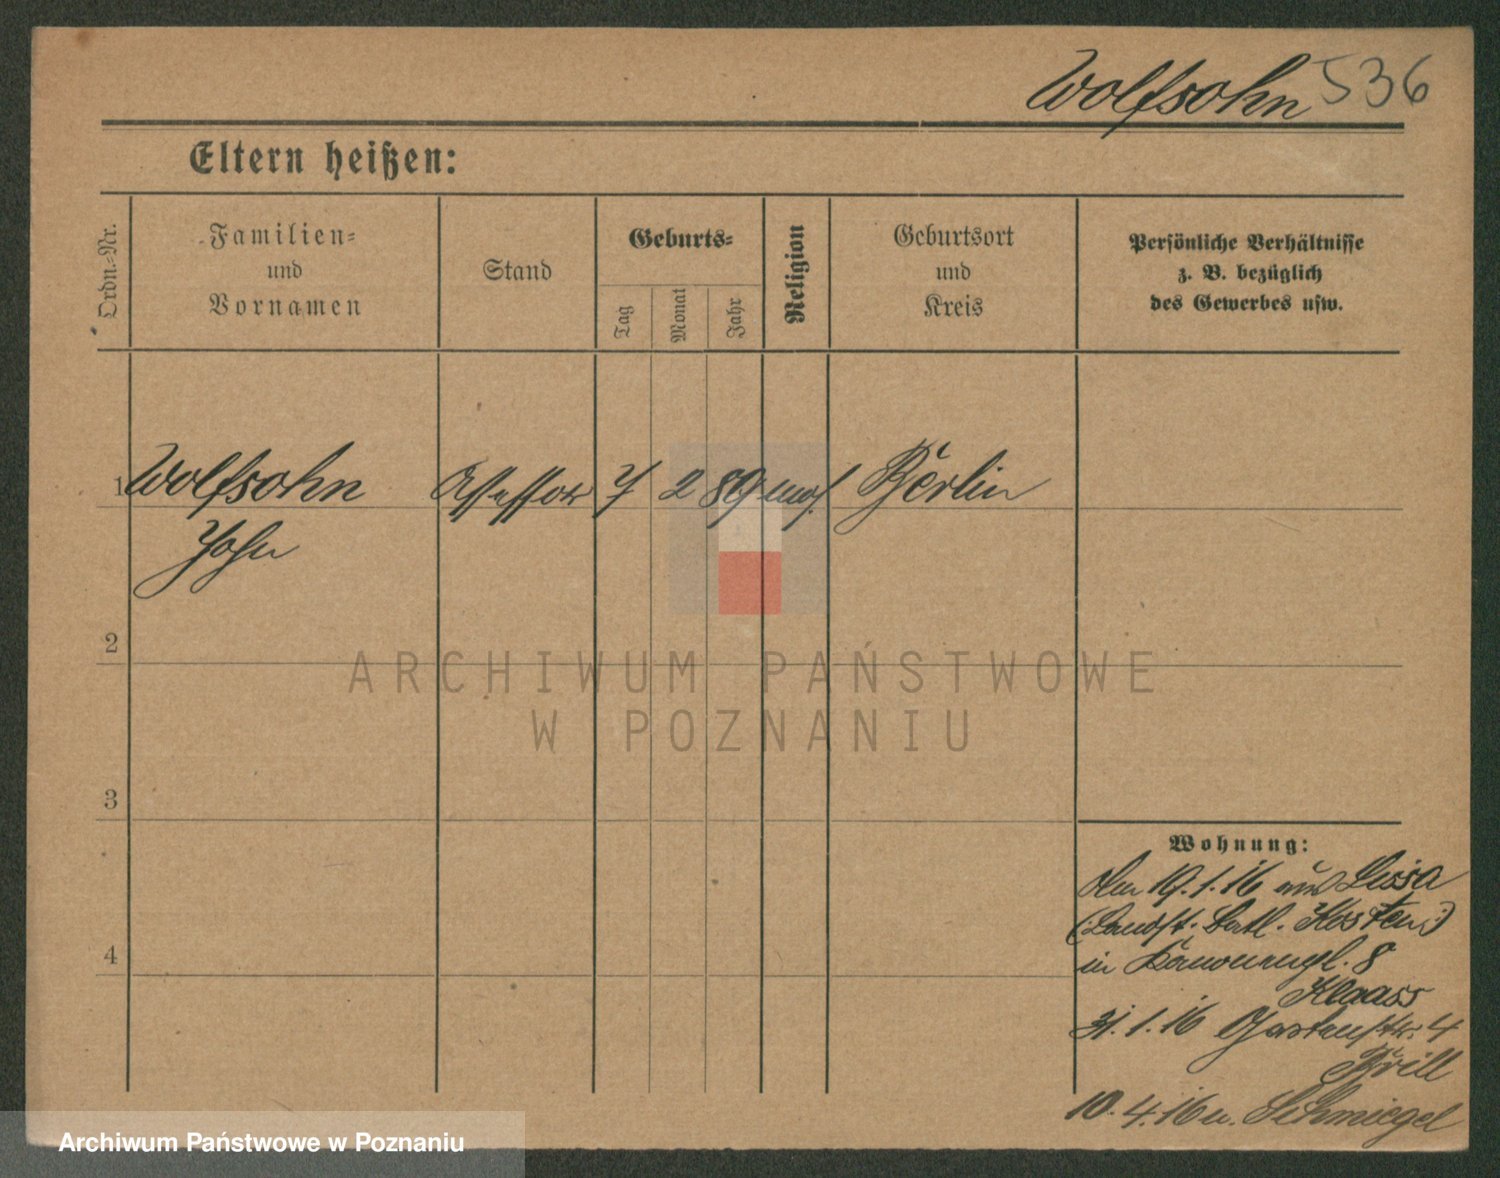 Wolfsohn 536
Eltern heißen:
Ordn.-Nr.
Familien-
und
Vornamen
Stand
Geburts-
Tag
Monat
Jahr
Religion
Geburtsort
und
Kreis
Persönliche Verhältnisse
z. B. bezüglich
des Gewerbes usw.
1 Wolfsohn Assessor 7 2 89 mos. Berlin
John
2
3
4
Wohnung:
Am 19.1.16 aus Lissa
(Landst. Batl. Kosten)
in Kanonenpl. 8
Klaass
31.1.16 Gartenstr. 4
Brill
10.4.16 n. Schmiegel
ARCHIWUM PAŃSTWOWE
W POZNANIU
Archiwum Państwowe w Poznaniu